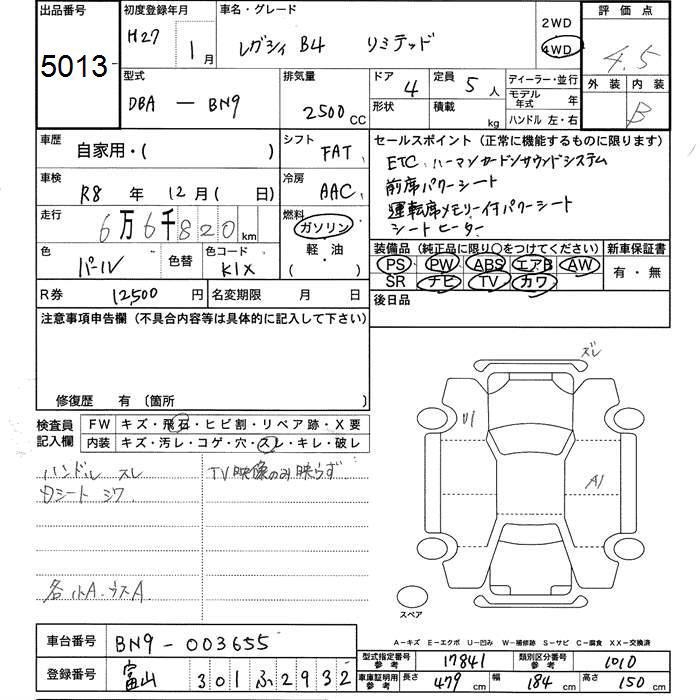 出品番号 初度登録年月 車名・グレード 2WD 評価点
5013 H27年 1月 レグシィ B4 リミテッド 4WD 4.5
型式 排気量 ドア 定員 ディーラー・並行 外装 内装
DBA － BN9 2500CC 4 5人 モデル年式 年 B
形状 積載 kg ハンドル 左・右
車歴 シフト セールスポイント(正常に機能するものに限ります)
自家用・( ) FAT ETC、ハーマンカードンサウンドシステム
車検 冷房 前席パワーシート
R8年 12月( 日) AAC 運転席メモリー付パワーシート
走行 燃料 シートヒーター
6万6千820km ガソリン
色 色替 色コード 軽・油 装備品(純正品に限り○をつけてください) 新車保証書
パール K1X ( ) PS PW ABS エアB AW 有・無
SR ナビ TV カワ
R券 12,500円 名変期限 月 日 後日品
注意事項申告欄(不具合内容等は具体的に記入して下さい)
修復歴 有〔箇所 〕
ズレ
U1
A1
検査員記入欄 FW キズ・飛石・ヒビ割・リペア跡・X要
内装 キズ・汚レ・コゲ・穴・スレ・キレ・破レ
ハンドル スレ TV映像のみ映らず
Dシート シワ
各小A.ウスA
スペア
A－キズ E－エクボ U－凹み W－補修跡 S－サビ C－腐食 XX－交換済
車台番号 BN9-003655
型式指定番号 参考 17841 類別区分番号 参考 1010
登録番号 富山 301ふ2932
車庫証明用 参考 長さ 479cm 幅 184cm 高さ 150cm